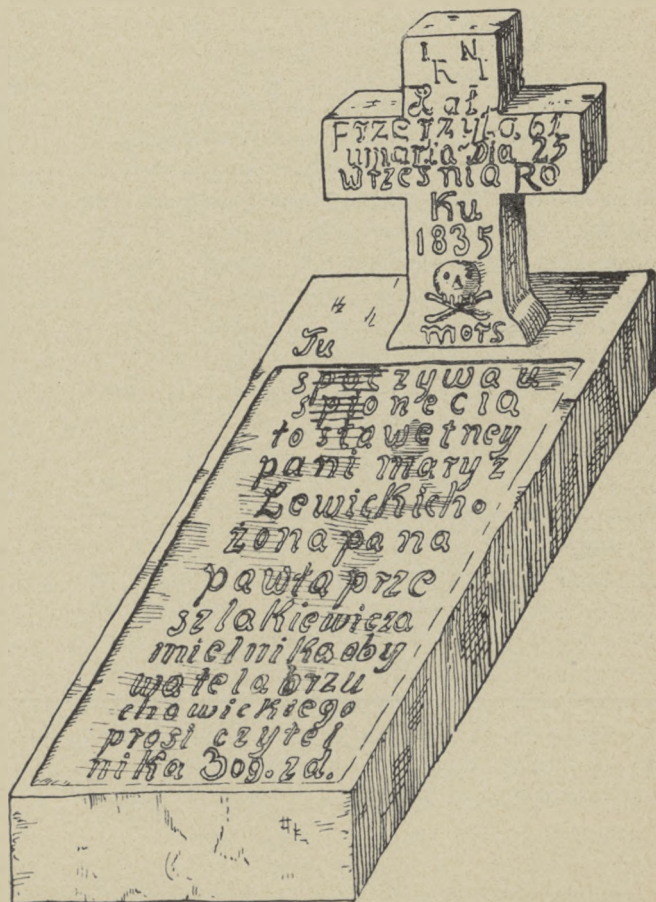 I N
R I
Lat
Przerzyła 61
umarła Dia 25
września RO
Ku
1835
mors
Tu
spoczywa u
spionecia
to sławetney
pani mary z
Lewickich.
żona pana
pawła prze
szlakiewicza
mielnika oby
watela brzu
chowickiego
prosi czytel
nika 3 og. zd.